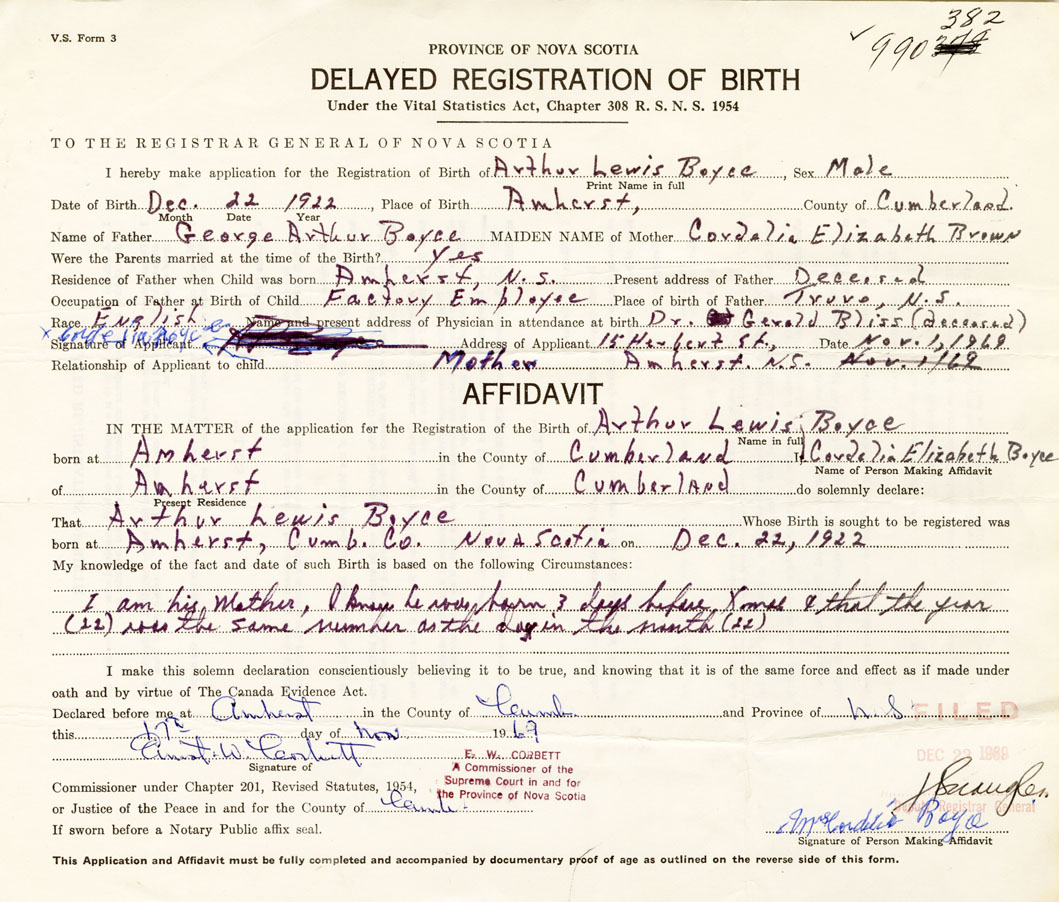 V.S. Form 3
382
990
PROVINCE OF NOVA SCOTIA
DELAYED REGISTRATION OF BIRTH
Under the Vital Statistics Act, Chapter 308 R. S. N. S. 1954
TO THE REGISTRAR GENERAL OF NOVA SCOTIA
I hereby make application for the Registration of Birth of Arthur Lewis Boyce, Sex Male
Print Name in full
Date of Birth Dec. 22 1922, Place of Birth Amherst, County of Cumberland.
Month Date Year
Name of Father George Arthur Boyce MAIDEN NAME of Mother Cordelia Elizabeth Brown
Were the Parents married at the time of the Birth? Yes
Residence of Father when Child was born Amherst, N.S. Present address of Father Deceased
Occupation of Father at Birth of Child Factory Employee Place of birth of Father Truro, N.S.
Race English Name and present address of Physician in attendance at birth Dr. Gerald Bliss (deceased)
Signature of Applicant Address of Applicant 15 Herbert St., Date Nov. 1, 1969
Relationship of Applicant to child Mother Amherst. N.S. Nov. 1/69
AFFIDAVIT
IN THE MATTER of the application for the Registration of the Birth of Arthur Lewis Boyce
Name in full
born at Amherst in the County of Cumberland I, Cordelia Elizabeth Boyce
Name of Person Making Affidavit
of Amherst in the County of Cumberland do solemnly declare:
Present Residence
That Arthur Lewis Boyce Whose Birth is sought to be registered was
born at Amherst, Cumb. Co. Nova Scotia on Dec. 22, 1922
My knowledge of the fact and date of such Birth is based on the following Circumstances:
I am his Mother, I know he was born 3 days before Xmas & that the year
(22) was the same number as the day in the month (22)
I make this solemn declaration conscientiously believing it to be true, and knowing that it is of the same force and effect as if made under
oath and by virtue of The Canada Evidence Act.
Declared before me at Amherst in the County of Cumb. and Province of N.S.
FILED
this 17th day of Nov 1969
DEC 22 1969
Ernest W. Corbett
Signature of
E. W. CORBETT
A Commissioner of the
Supreme Court in and for
the Province of Nova Scotia
Commissioner under Chapter 201, Revised Statutes, 1954,
or Justice of the Peace in and for the County of Cumb.
Deputy Registrar General
If sworn before a Notary Public affix seal.
Mrs Cordelia Boyce
Signature of Person Making Affidavit
This Application and Affidavit must be fully completed and accompanied by documentary proof of age as outlined on the reverse side of this form.